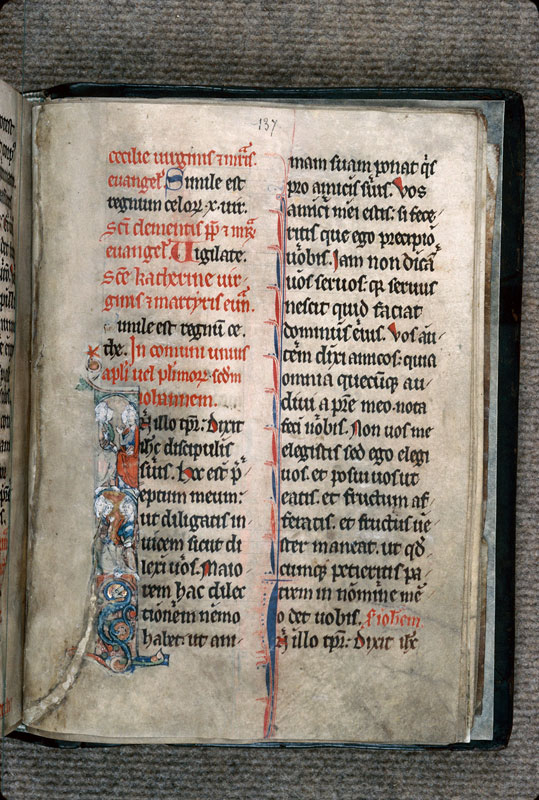 137
cecilie uirginis ⁊ mr̃is.
euangel̃. Simile est
regnum celoꝝ. x. uir.
sc̃i clementis pp̃ ⁊ mr̃
euangel̃. Vigilate.
sc̃e katherine uir
ginis ⁊ martyris eũ.
imile est regnũ ce.
the. In comuni unius
apl̃i uel plimoꝝ. scd̃m
iohannem.
N illo tp̃r: dixit
ih̃c discipulis
suis. hoc est p̃
eptum meum:
ut diligatis in
uicem sicut di
lexi uos. Maio
rem hac dilec
tionem nemo
habet: ut ani
mam suam ponat q̃s
pro amicis suis. Vos
amici mei estis. si fece
ritis que ego precipio
uobis. Iam non dicã
uos seruos: qꝫ seruus
nescit quid faciat
dominus eius. Vos au
tem dixi amicos: quia
omnia quecũqꝫ au
diui a pr̃e meo. nota
feci uobis. Non uos me
elegistis sed ego elegi
uos. et posui uos ut
eatis. et fructum af
feratis. et fructus ue
ster maneat. ut qd̃
cumqꝫ petieritis pa
trem in nomine me
o det uobis. s̃ iohem
N illo tp̃r: dixit ih̃c